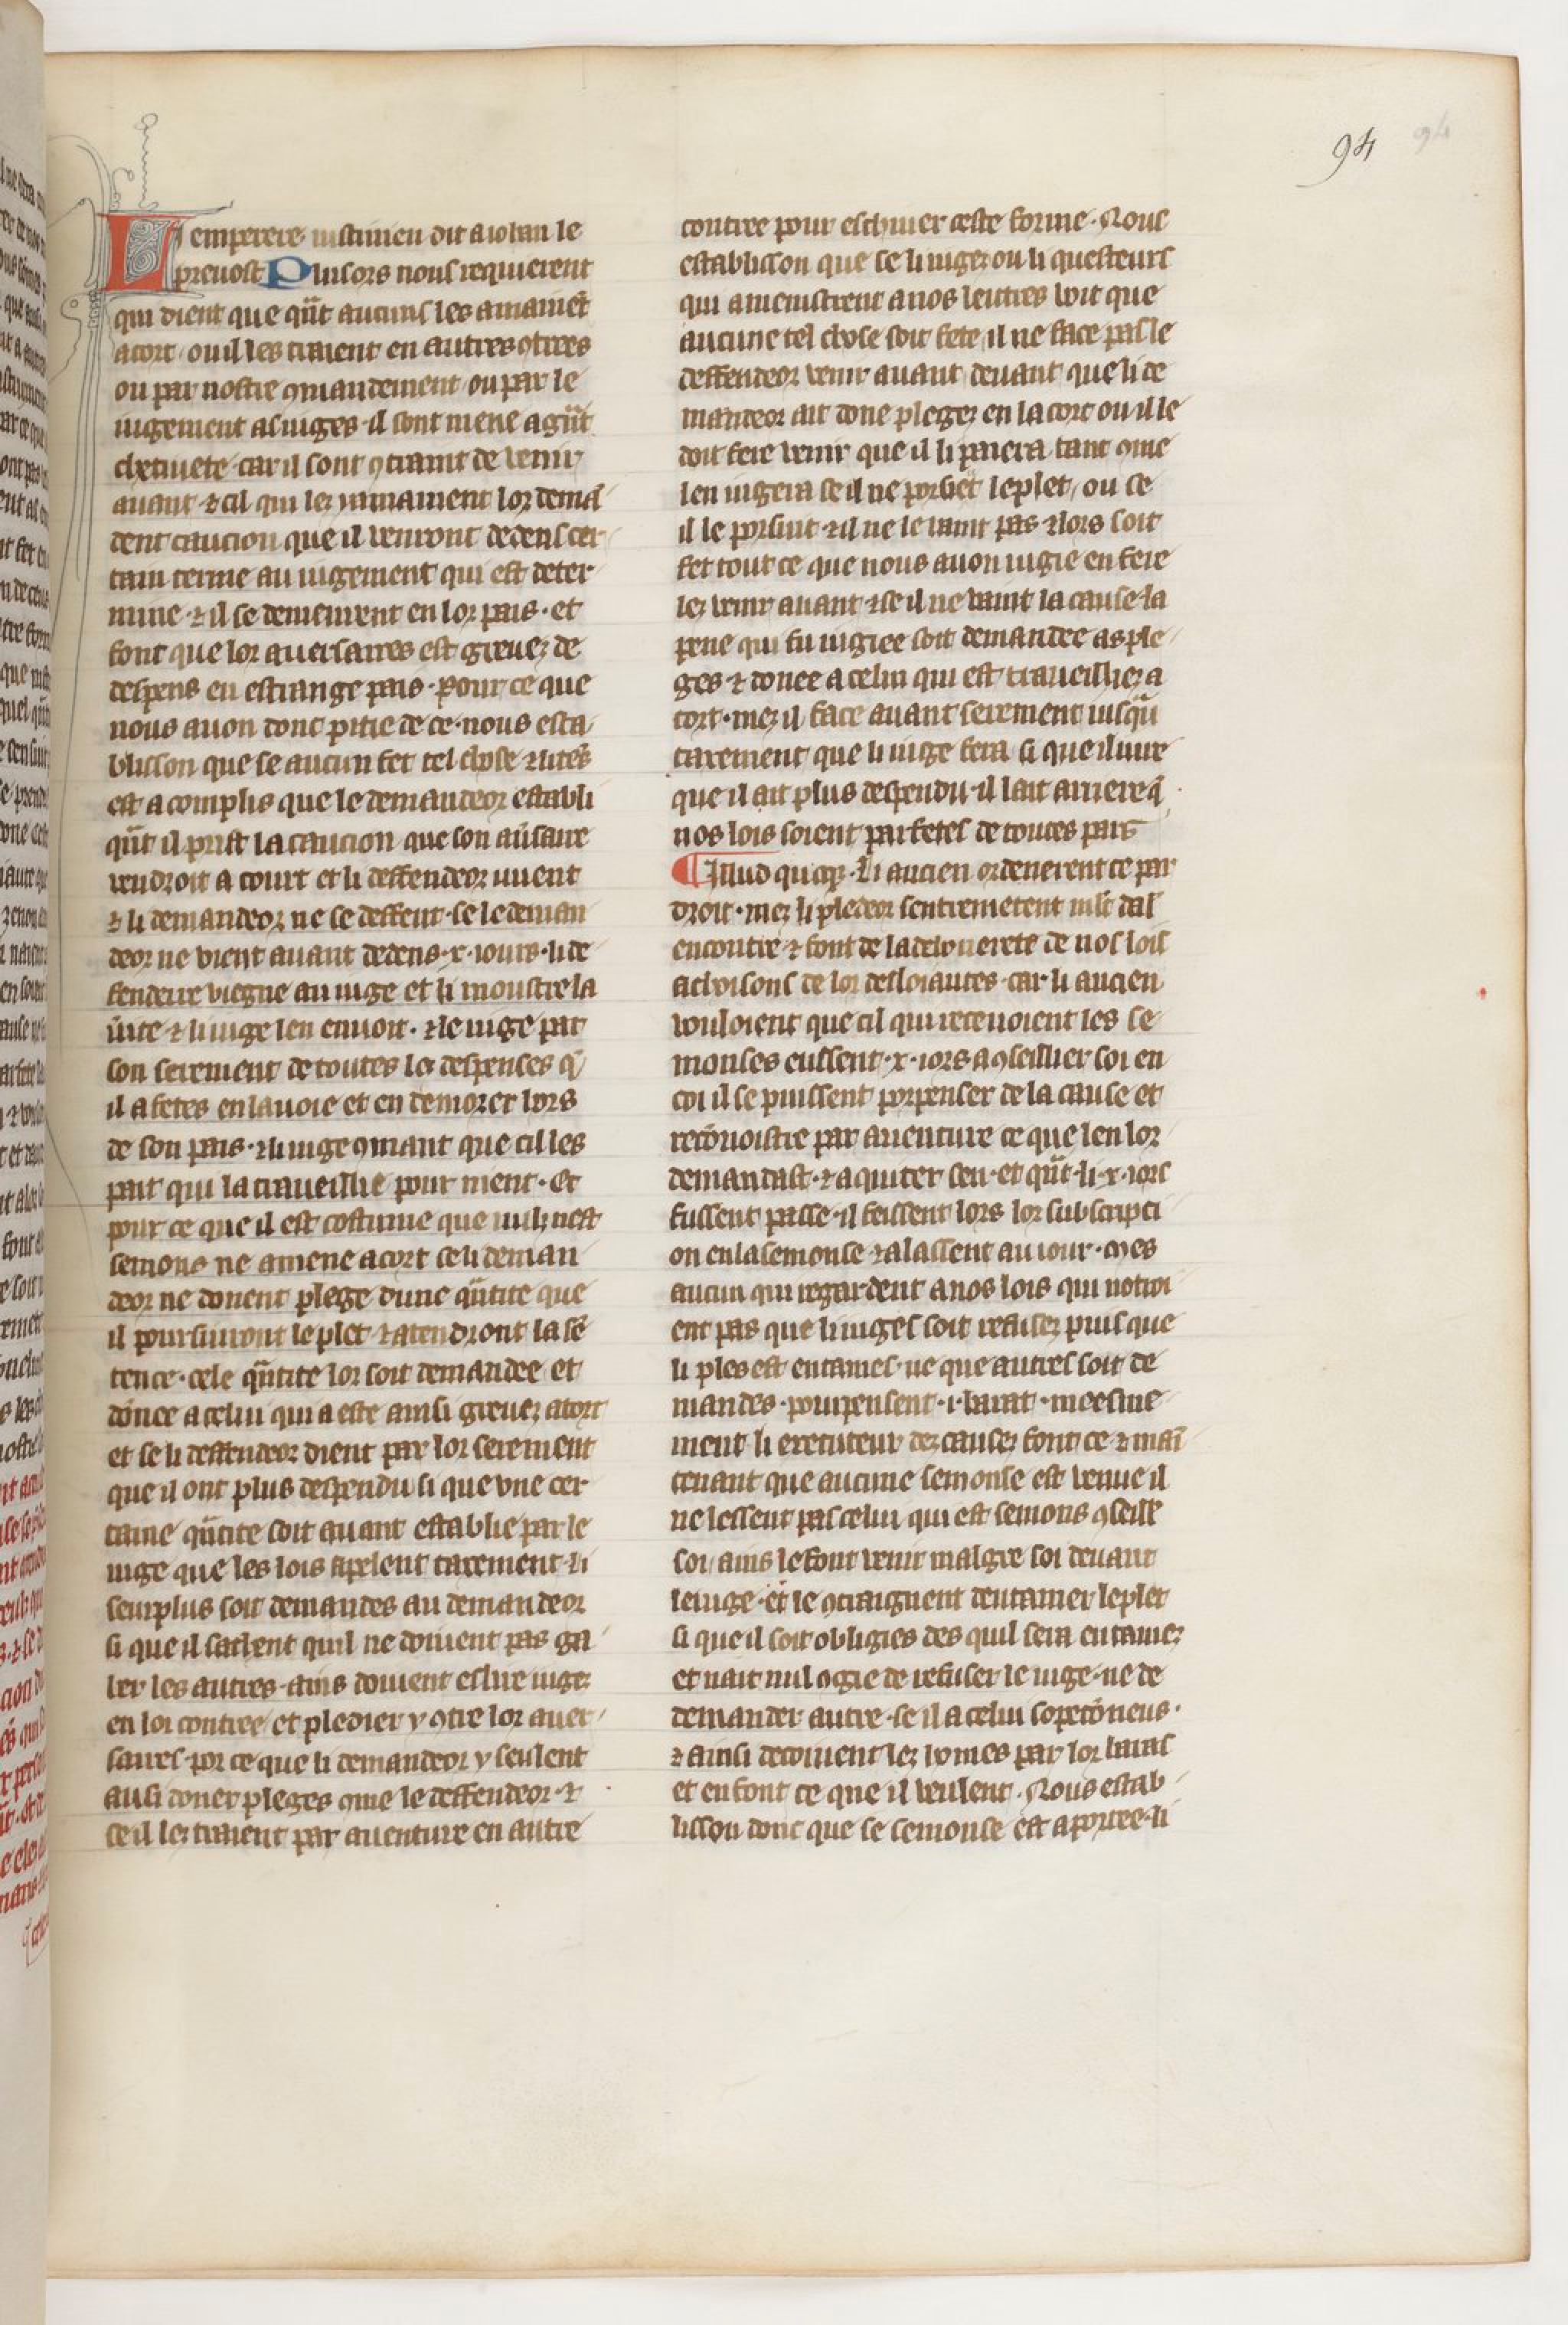 94 94
Li emperere iustinien dit a iohan le
preuost Pluisors nous requierent
qui dient que qn̄t aucuns les amainēt
a cort ou il les traient en autres ꝯtrees
ou par nostre ꝯmandement ou par le
iugement as iuges il sont mene a gn̄t
chetiuete car il sont ꝯtraint de venir
auant ⁊ cil qui lez y mainent lor demā
dent caucion que il venront dedens cer
tain terme au iugement qui est deter
mine ⁊ il se demeurent en lor pais et
font que lor auersaires est greuez de
despens en estrange pais. Pour ce que
nous auon donc pitie de ce nous esta
blisson que se aucun fet tel chose ⁊ li tēs
est acomplis que le demandeor establi
qn̄t il prist la caucion que son aūsaire
vendroit a court et li deffendeor uient
⁊ li demandeor ne se deffent se le deman
deor ne vient auant dedens .x. iours li de
fenderre viegne au iuge et li moustre la
ūite ⁊ li iuge len enuoit. ⁊ le iuge par
son serement de toutes les despenses q̄
il a fetes en la uoie et en demorer hors
de son pais. ⁊ li iuge ꝯmant que cil les
pait qui la traueillie pour nient. Et
pour ce que il est costume que nulz nest
semons ne amene a cort se li deman
deor ne donent plege dune qn̄tite que
il poursiuront le plet ⁊ atendront la sē
tence. cele qn̄tite lor soit demandee et
donee a celui qui a este ainsi greuez a tort
et se li deffendeor dient par lor serement
que il ont plus despendu si que vne cer
taine qn̄tite soit auant establie par le
iuge que les lois apelent taxement li
seurplus soit demandes au demandeor
si que il sachent quil ne doiuent pas ga
ber les autres ains doiuent eslire iuge
en lor contree et pledier y ꝯtre lor auer
saires por ce que li demandeor y seulent
ausi doner pleges ꝯme le deffendeor ⁊
se il lez traient par auenture en autre
contree pour eschiuer ceste forme. Nous
establisson que se li iugez ou li questeurs
qui amenistrent a nos leutres voit que
aucune tel chose soit fete il ne face pas le
deffendeor venir auant deuant que li de
mandeor ait done plegez en la cort ou il le
doit fere venir que il li paiera tant ꝯme
len iugera se il ne porsiet le plet ou se
il le porsiut ⁊ il ne le vaint pas ⁊ lors soit
fet tout ce que nous auon iugie en fere
lez venir auant ⁊ se il ne vaint la cause la
pene qui fu iugiee soit demandee as ple
ges ⁊ donee a celui qui est traueilliez a
tort. mez il face auant serement iusqū
taxement que li iuge fera si que il iure
que il ait plus despendu il lait arriere q̄
nos lois soient parfetes de toutes pars
¶ Illud quoqꝫ. Li ancien ordenerent ce par
droit. mez li pledeor sentremetent nīst dal
encontre ⁊ font de la debonerete de nos lois
achoisons de lor desloiautes. car li ancien
vouloient que cil qui receuoient les se
monses eussent .x. iors a ꝯseillier soi en
coi il se puissent porpenser de la cause et
recōnoistre par auenture ce que len lor
demandast. ⁊ aquiter sen. et qn̄t li .x. iors
fussent passe il feissent lors lor subscripti
on en la semonse ⁊ alassent au iour. mes
aucun qui regardent a nos lois qui notroi
ent pas que li iuges soit refusez puis que
li ples est entames ne que autres soit de
mandes. pourpensent .i. barat. meesme
ment li executeur dez causez font ce ⁊ mai
tenant que aucune semonse est venue il
ne lessent pas celui qui est semons ꝯseill̄r
soi ains le font venir malgre soi deuant
le iuge et le ꝯtraignent dentamer le plet
si que il soit obligies des quil sera entamez
et nait nul ꝯgie de refuser le iuge ne de
demander autre se il a celui sopecōneus.
⁊ ainsi decoiuent lez homes par lor baras
et en font ce que il veulent. Nous estab
lisson donc que se semonse est aportee li